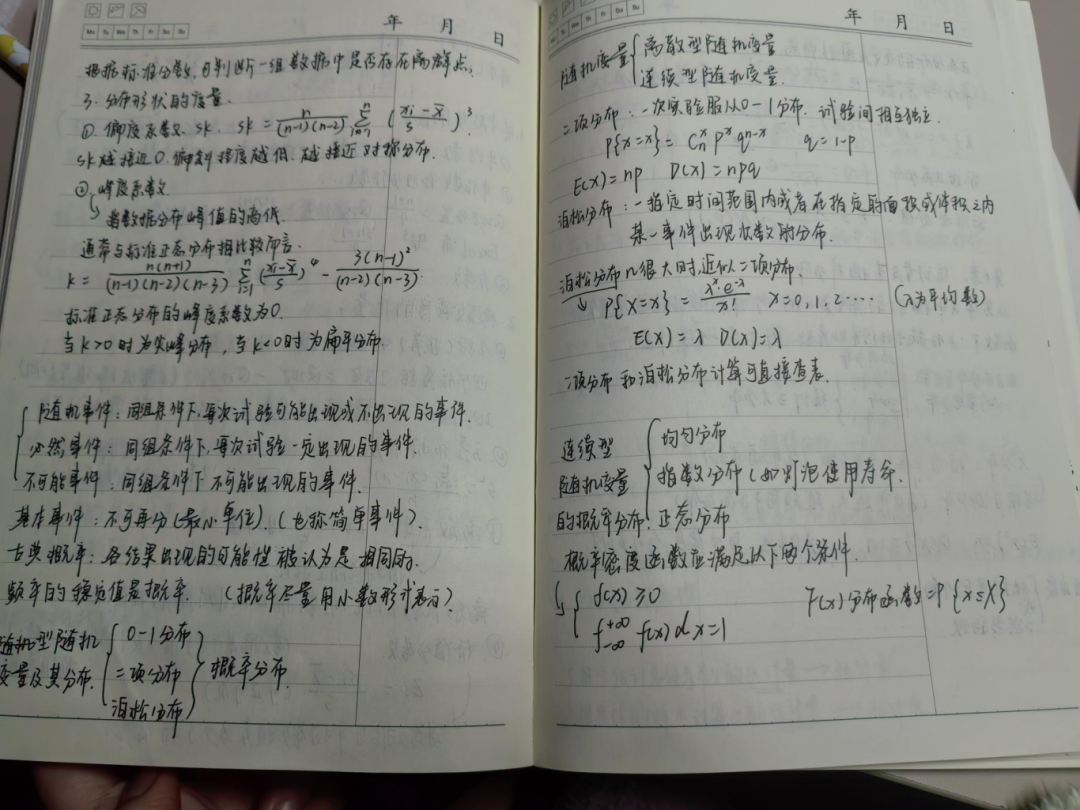 年 月 日
Mo Tu We Th Fr Sa Su
根据标准分数,可判断一组数据中是否存在离群点.
3. 分布形状的度量.
① 偏度系数 SK. SK = n/((n-1)(n-2)) Σ(i=1→n) ((xi-x̄)/s)³
SK越接近0,偏斜程度越低,越接近对称分布.
② 峰度系数.
↳ 指数据分布峰值的高低.
通常与标准正态分布相比较而言.
K = n(n+1)/((n-1)(n-2)(n-3)) Σ(i=1→n) ((xi-x̄)/s)⁴ - 3(n-1)²/((n-2)(n-3))
标准正态分布的峰度系数为0.
当K>0时为尖峰分布,当K<0时为扁平分布.
随机事件:同组条件下,每次试验可能出现或不出现的事件.
必然事件:同组条件下,每次试验一定出现的事件.
不可能事件:同组条件下不可能出现的事件.
基本事件:不可再分(最小单位).(也称简单事件).
古典概率:各结果出现的可能性被认为是相同的.
频率的稳定值是概率.(概率尽量用小数形式表示).
随机型随机变量及其分布. { 0-1分布
二项分布
泊松分布 } 概率分布
年 月 日
Mo Tu We Th Fr Sa Su
随机变量 { 离散型随机变量
连续型随机变量.
二项分布:一次实验服从0-1分布.试验间相互独立.
P{X=x} = Cₙˣ pˣ qⁿ⁻ˣ q=1-p
E(X)=np D(X)=npq
泊松分布:一指定时间范围内或者在指定的面积或体积之内
某一事件出现次数的分布.
泊松分布n很大时,近似二项分布.
↓ P{X=x} = λˣe⁻λ/x! x=0,1,2…… (λ为平均数)
E(X)=λ D(X)=λ
二项分布和泊松分布计算可直接查表.
连续型随机变量的概率分布: { 均匀分布
指数分布(如灯泡使用寿命.
正态分布
概率密度函数应满足以下两个条件.
↳ { f(x)≥0 F(x)分布函数=P{x≤X}
∫₋∞⁺∞ f(x)dx=1